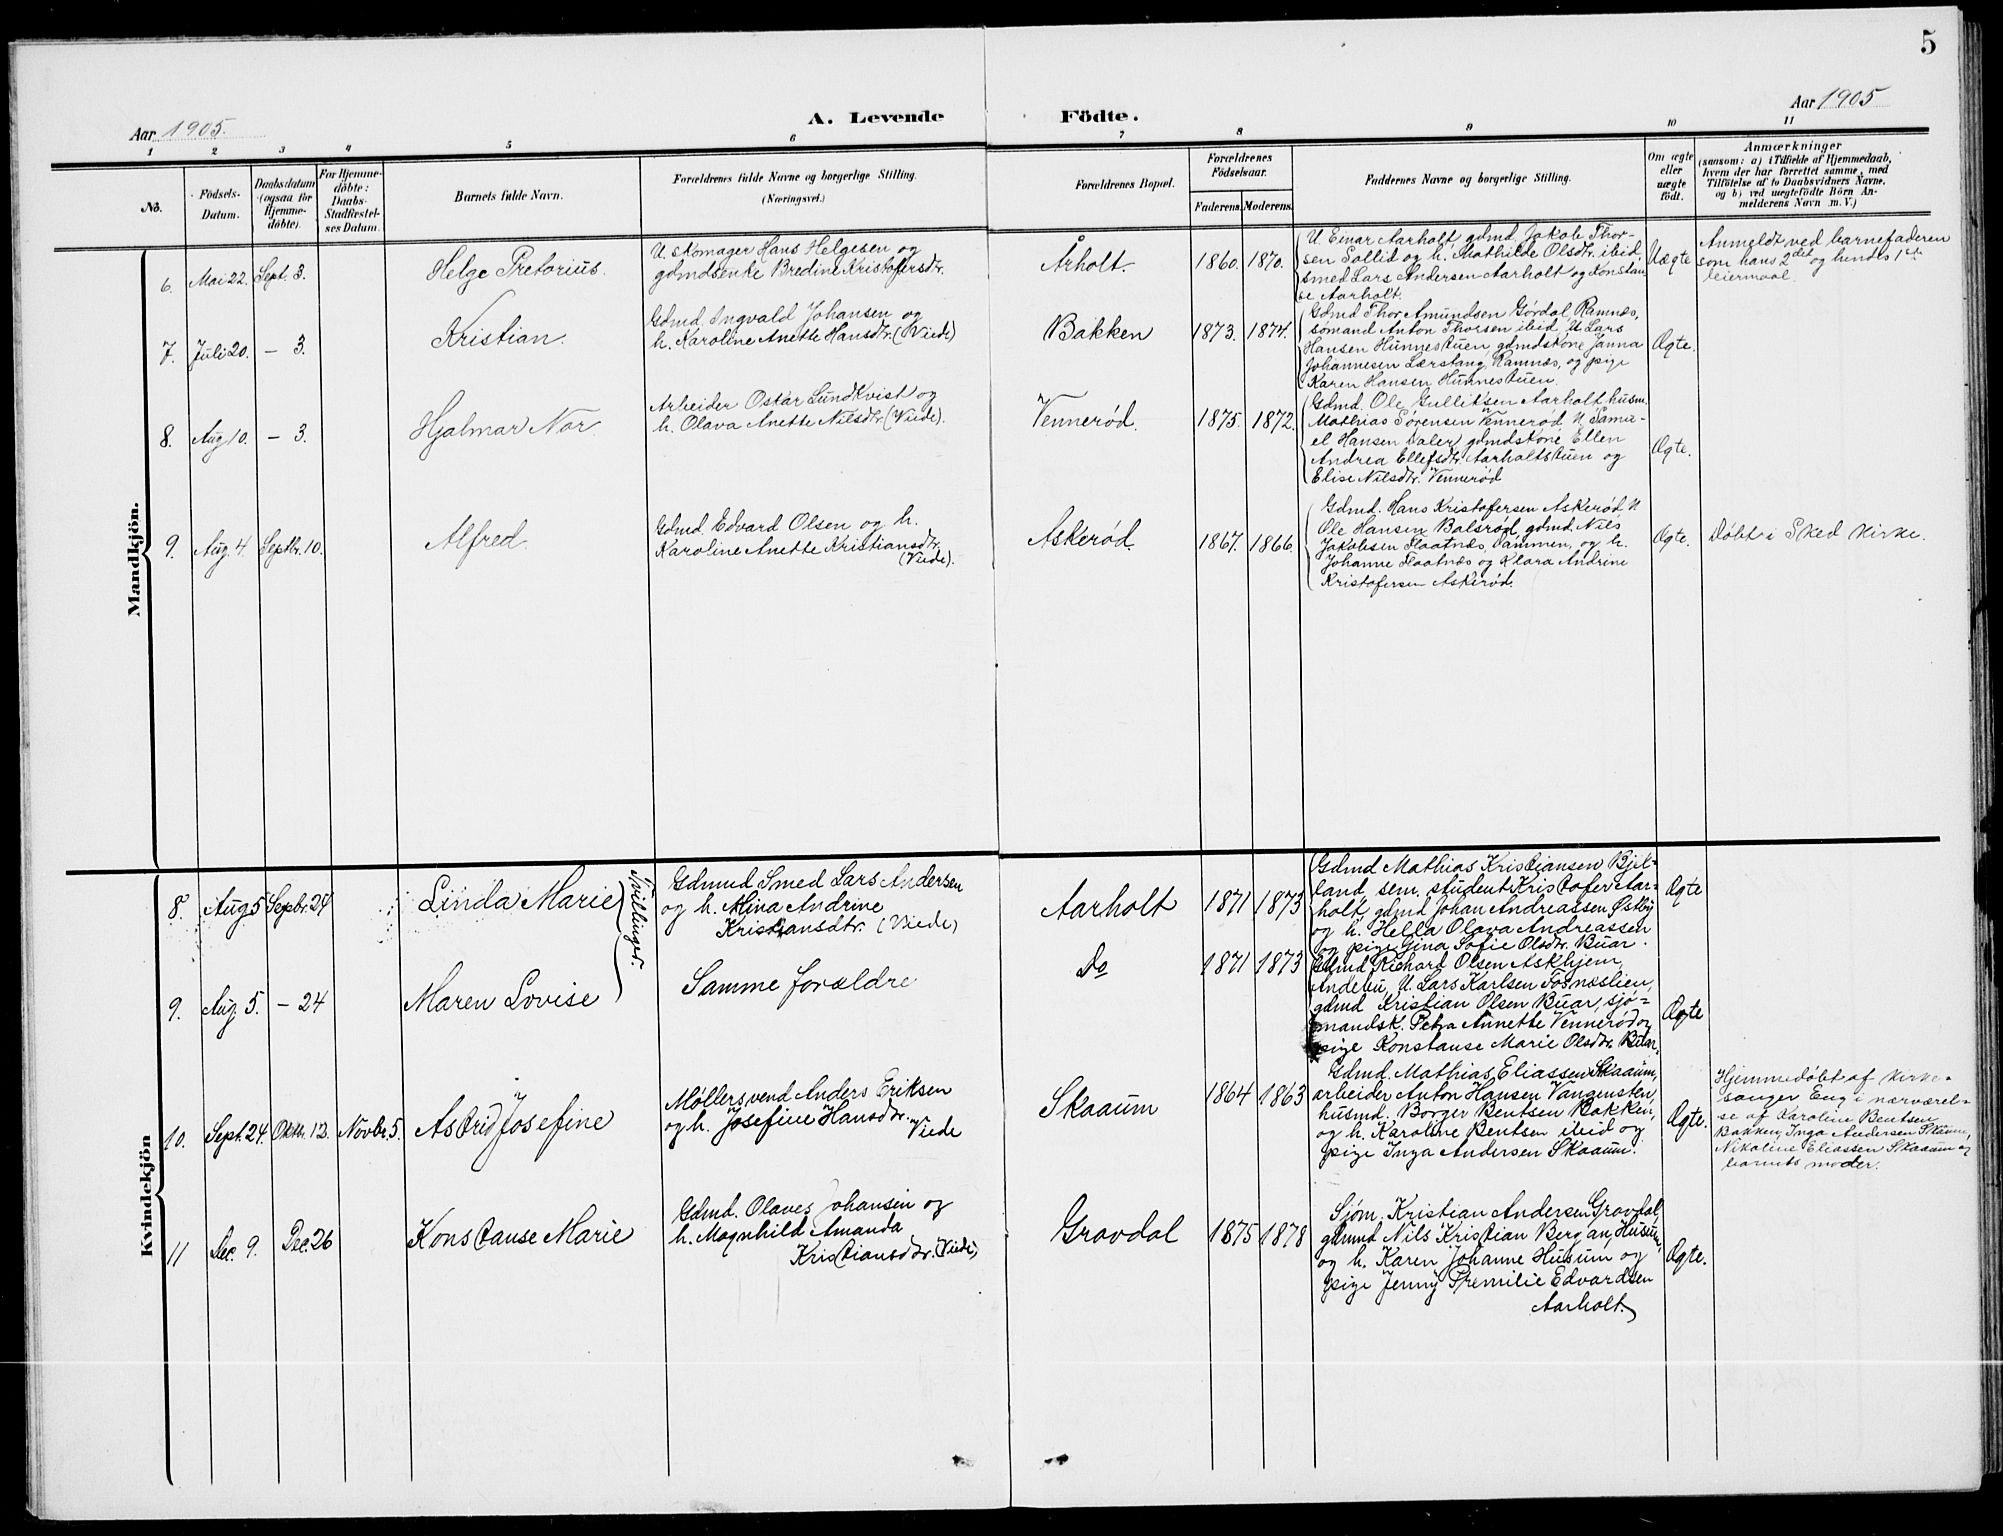 5
Aar 1905.
A. Levende
Födte.
Aar 1905
1 2 3 4 5 6 7 8 9 10 11
No.
Födsels-
Datum.
Daabsdatum
(ogsaa for
Hjemme-
døbte).
For Hjemme-
døbte:
Daabs-
Stadfæstel-
ses Datum.
Barnets fulde Navn.
Forældrenes fulde Navne og borgerlige Stilling.
(Næringsvei.)
Forældrenes Bopæl.
Forældrenes
Födselsaar.
Faderens. Moderens.
Faddernes Navne og borgerlige Stilling.
Om ægte
eller
uægte
födt.
Anmærkninger
(saasom: a) i Tilfælde af Hjemmedaab,
hvem der har forrettet samme, med
Tilföielse af to Daabsvidners Navne,
og b) ved uægtefödte Börn An-
melderens Navn m. V.)
Mandkjön.
6. Mai 22. Sept. 3.
Helge Pretorius.
U. skomager Hans Helgesen og
gdmdsenke Bredine Kristofersdtr.
Årholt.
1860. 1870.
U. Einar Aarholt, gdmd. Jakob Thor-
sen Sollid og h. Mathilde Olsdtr. ibid,
smed Lars Andersen Aarholt og Konstan
se Aarholt.
Uægte
Anmeldt ved barnefaderen
som hans 2det og hendes 1ste
leiermaal.
7. Juli 20. — 3.
Kristian.
Gdmd. Ingvald Johansen og
h. Karoline Anette Hansdtr. (Viede)
Bakken
1873. 1874.
Gdmd Thor Amundsen Gørdal Ramnæs,
sømand Anton Thorsen ibid, U. Lars
Hansen Hunnestuen, gdmdskone Janna
Johannesen Lærstang, Ramnæs, og pige
Karen Hansen Hunnestuen.
Ægte.
8. Aug 10. — 3.
Hjalmar Nor.
Arbeider Oskar Lundkvist og
h. Olava Anette Nilsdtr. (Viede).
Vennerød.
1875. 1872.
Gdmd. Ole Gulliksen Aarholt, husm.
Mathias Sørensen Vennerød, U. Samu-
el Hansen Daler, gdmdskone Ellen
Andrea Ellefsdtr. Aarholtstuen og
Elise Nilsdtr. Vennerød
Ægte.
9. Aug. 4. Septbr. 10.
Alfred.
Gdmd. Edvard Olsen og h.
Karoline Anette Kristiansdtr.
(Viede).
Askerød.
1867. 1866.
Gdmd. Hans Kristofersen Askerød, U
Ole Hansen Balsrød, gdmd. Nils
Jakobsen Flaatnæs, Tammen, og h.
Johanne Flaatnæs og Klara Andrine
Kristofersen Askerød.
Ægte.
Døbt i Sked kirke.
Kvindekjön
8. Aug 5 Septbr. 24
Linda Marie
Tvillinger.
Gdmd Smed Lars Andersen
og h. Mina Andrine
Kristiansdtr. (Viede)
Aarholt
1871 1873
Gdmd Mathias Kristiansen Bjel-
land, sem. student Kristofer Aar-
holt, gdmd Johan Andreassen Østby
og h. Hella Olava Andreassen
og pige Gina Sofie Olsdtr. Buar.
Ægte
9. Aug. 5. — 24
Maren Lovise
Samme forældre
Do
1871 1873
Gdmd Richard Olsen Askhjem,
Andebu, U. Lars Karlsen Fosnæslien,
gdmd Kristian Olsen Buar, sjø-
mandsk. Petra Annette Vennerød og
pige Konstanse Marie Olsdtr. Buar.
Ægte
10. Sept 24. Oktr. 13. Novbr. 5.
Astrid Josefine
Møllersvend Anders Eriksen
og h. Josefine Hansdtr.
Viede
Skaaum
1864 1863
Gdmd. Mathias Eliassen Skaaum,
arbeider Anton Hansen Vangensten,
husmd. Borger Bentsen Bakken,
og h. Karoline Bentsen ibid og
pige Inga Andersen Skaaum.
Ægte.
Hjemmedøbt af kirke-
sanger Eng i nærværel-
se af Karoline Bentsen
Bakken, Inga Andersen Skaaum,
Nikoline Eliassen Skaaum og
barnets moder.
11 Dec. 9. Dec. 26
Konstanse Marie
Gdmd. Olaves Johansen og
h. Magnhild Amanda
Kristiansdtr. (Viede)
Gravdal
1875 1878
Sjøm. Kristian Andersen Gravdal,
gdmd Nils Kristian Bergan, Husum,
og h. Karen Johanne Husum og
pige Jenny Premilie Edvardsen
Aarholt.
Ægte.